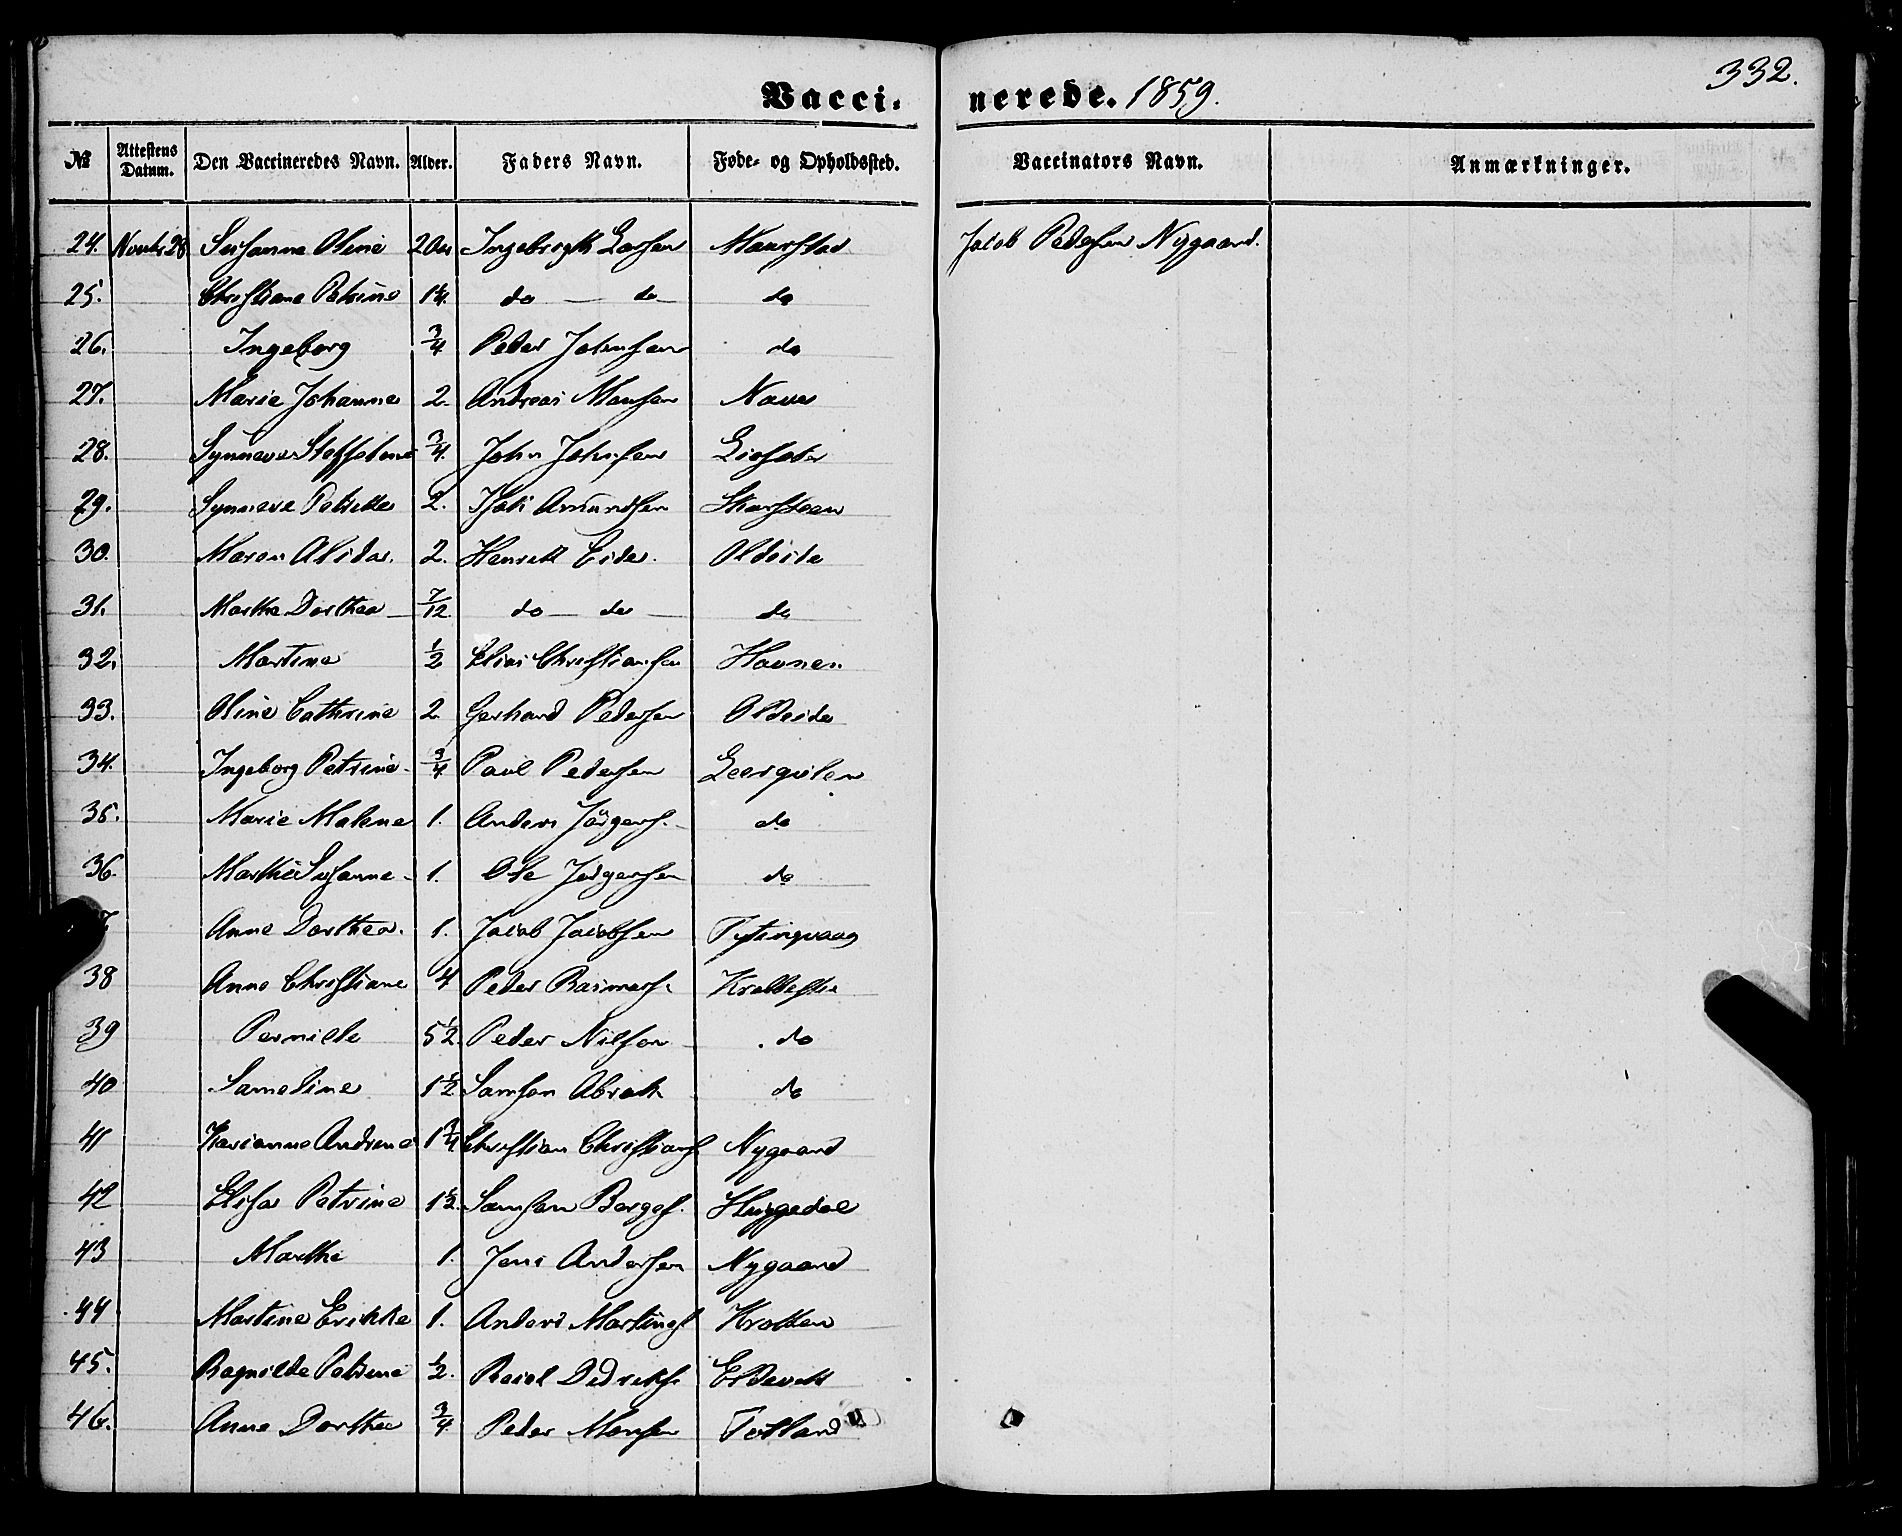 332.
Vacci- nerede. 1859.
№ Attestens Datum. Den Vaccineredes Navn. Alder. Faders Navn. Føde- og Opholdssted. Vaccinators Navn. Anmærkninger.
24. Novbr 28 Susanne Oline 2 Larsen Maurstad Jacob Pedersen Nygaard.
25. Christiane Petrine do do do
26. Ingeborg 3/4 Peder Johnsen do
27. Marie Johanne 2. Andreas Monsen Naves
28. 3/4. John Johnsen
29. Synneve Petrikke 2. Amundsen Skarsteen
30. Maren Alida. 2. Henrik Eide. Oldeide
31. Marthe Dorthea 7/12 do do do
32. Martine 1/2 Elias Christiansen Havnen
33. Oline Cathrine 2 Gerhard Pedersen Oldeide
34. Ingeborg Petrine 3/4 Paul Pedersen
35. Marie Malene 1. Anders do
36. Marthe Susanne 1. Ole do
7 Anne Dorthea. 1. Jacob Jacobsen Tytingvaag
38 Anne Christiane 4 Peder Rasmuss.
39 Pernille 5 1/2 Peder Nilsen do
40 Sameline 1 1/2 Samson do
41 Marianne Andrine 1 3/4 Christian Christians Nygaard
42 Elisa Petrine 1 1/2 Samson
43 Marthe 1. Jens Andersen Nygaard
44 Martine Erikke 1. Anders
45. Ragnilde Petrine 1/2. Didriks. Eldevik
46. Anne Dorthea 3/4 Peder Monsen Totland